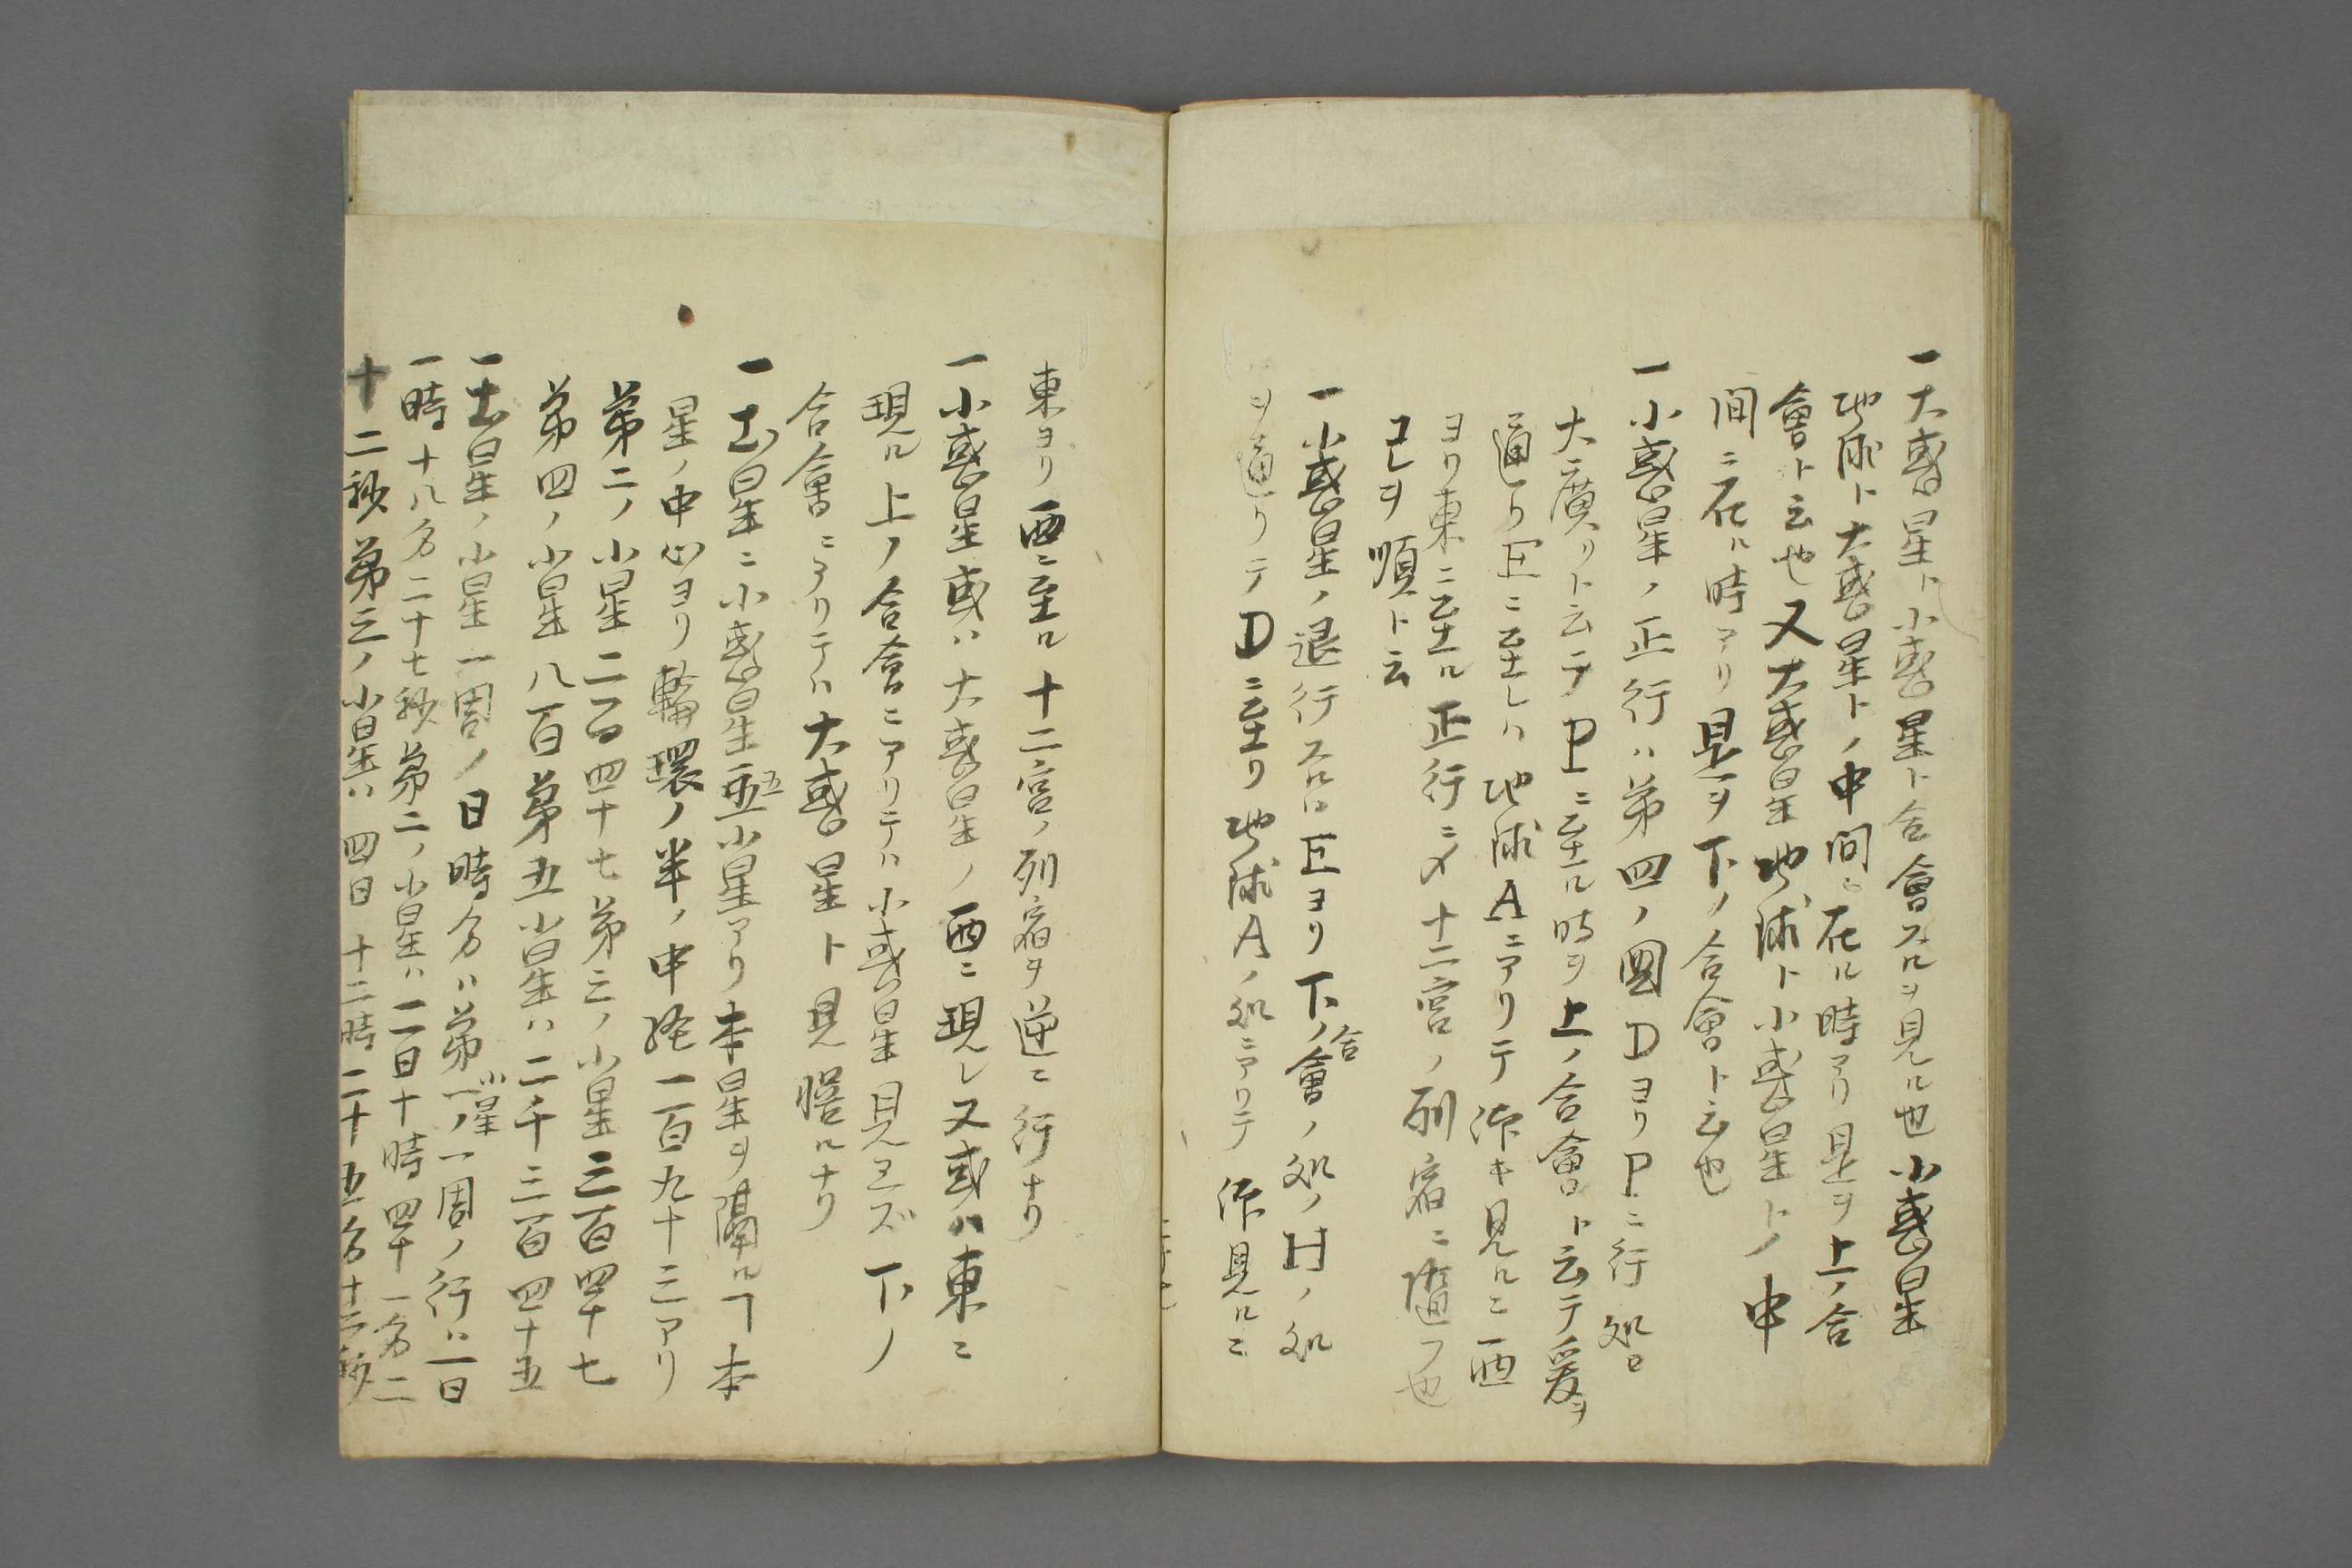 一大惑星ト小惑星ト合會スルヲ見ル也小惑星
地球ト大惑星トノ中間ニ在ル時アリ是ヲ上ノ合
會ト云也又大惑星地球ト小惑星トノ中
間ニ在ル時アリ是ヲ下ノ合會ト云也
一小惑星ノ正行ハ第四ノ圖DヨリPニ行処ヲ
大廣リト云テPニ至ル時ヲ上ノ合會ト云テ爰ヲ
通リEニ至レハ地球Aニアリテ作キ見ルニ西
ヨリ東ニ至ル正行ニ〆十二宮ノ列宿ニ隨フ也
コレヲ順ト云
一小惑星ノ退行スルハEヨリ下ノ合會ノ処ノHノ処
ヲ通リテDニ至リ地球Aノ処ニアリテ作見ルニ
東ヨリ西ニ至ル十二宮ノ列宿ヲ逆ニ行ナリ
一小惑星或ハ大惑星ノ西ニ現レ又或ハ東ニ
現ル上ノ合會ニアリテハ小惑星見ヱズ下ノ
合會ニアリテハ大惑星ト見ルナリ
一土星ニ小惑星五小星アリ本星ヲ隔ルヿ本
星ノ中心ヨリ輪環ノ半ノ中経一百九十三アリ
第二ノ小星二百四十七第三ノ小星三百四十七
第四ノ小星八百第五小星ハ二千三百四十五
一土星ノ小星一周ノ日時分ハ第一ノ小星一周ノ行ハ一日
一時十八分二十七秒第二ノ小星ハ二日十時四十一分二
十二秒第三ノ小星ハ四日十二時二十五分十二秒